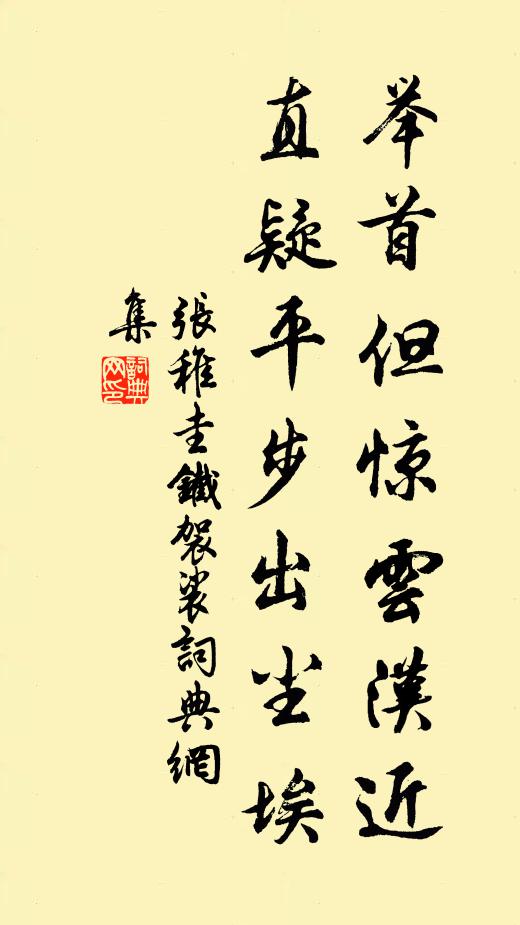 举首但惊雲漢近
直疑平步出尘埃
張稚圭鐵袈裟詞典網
集
詞典
网印